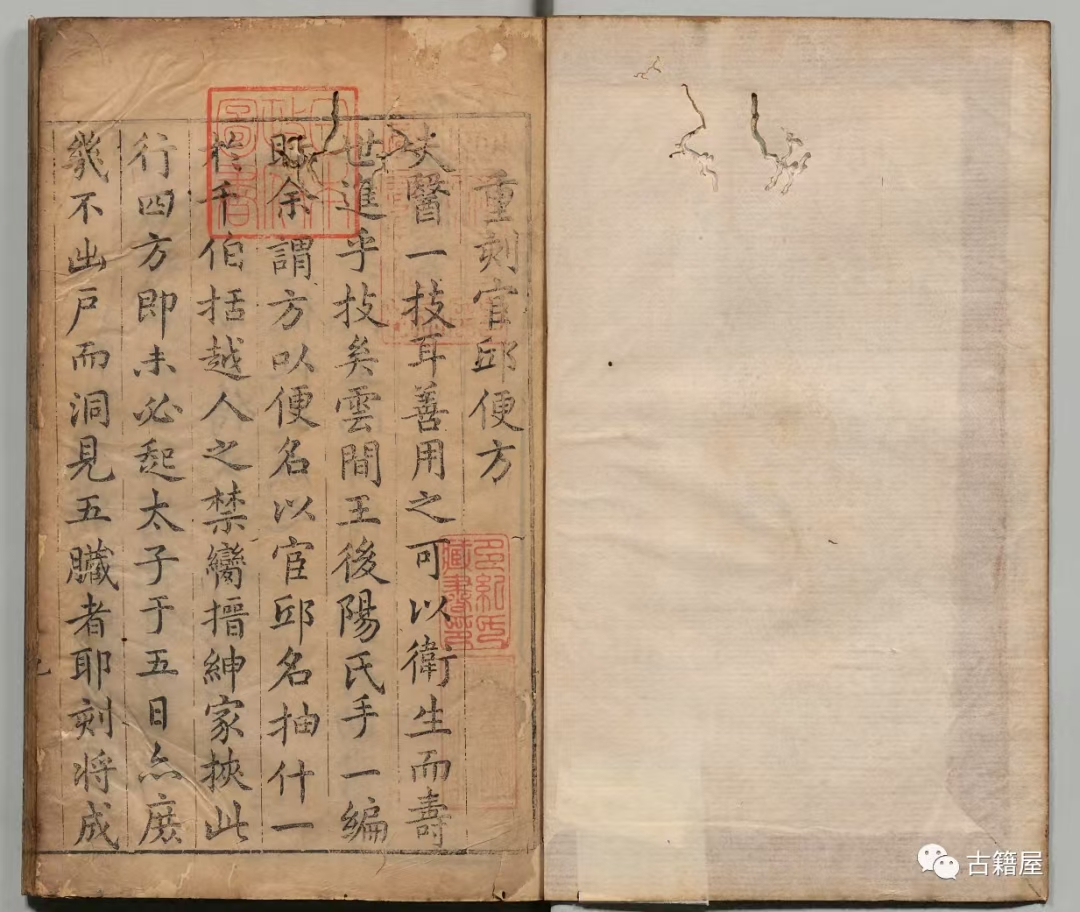 重刻官邱便方
夫醫一技耳善用之可以衛生而壽
世進乎技矣雲間王後陽氏手一編
眎余謂方以便名以宦邱名抽什一
於千伯括越人之禁臠搢紳家挾此
行四方即未必起太子于五日亦庶
幾不出戶而洞見五臟者耶刻将成
圖書
藏書
古籍屋